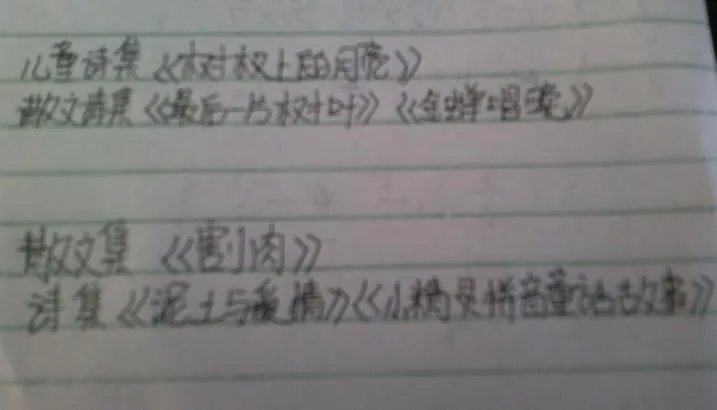 儿童诗集《树杈上的月亮》
散文诗集《最后一片树叶》《金蝉唱晚》
散文集《割小肉》
诗集《泥土与爱情》《小精灵拼音童话故事》